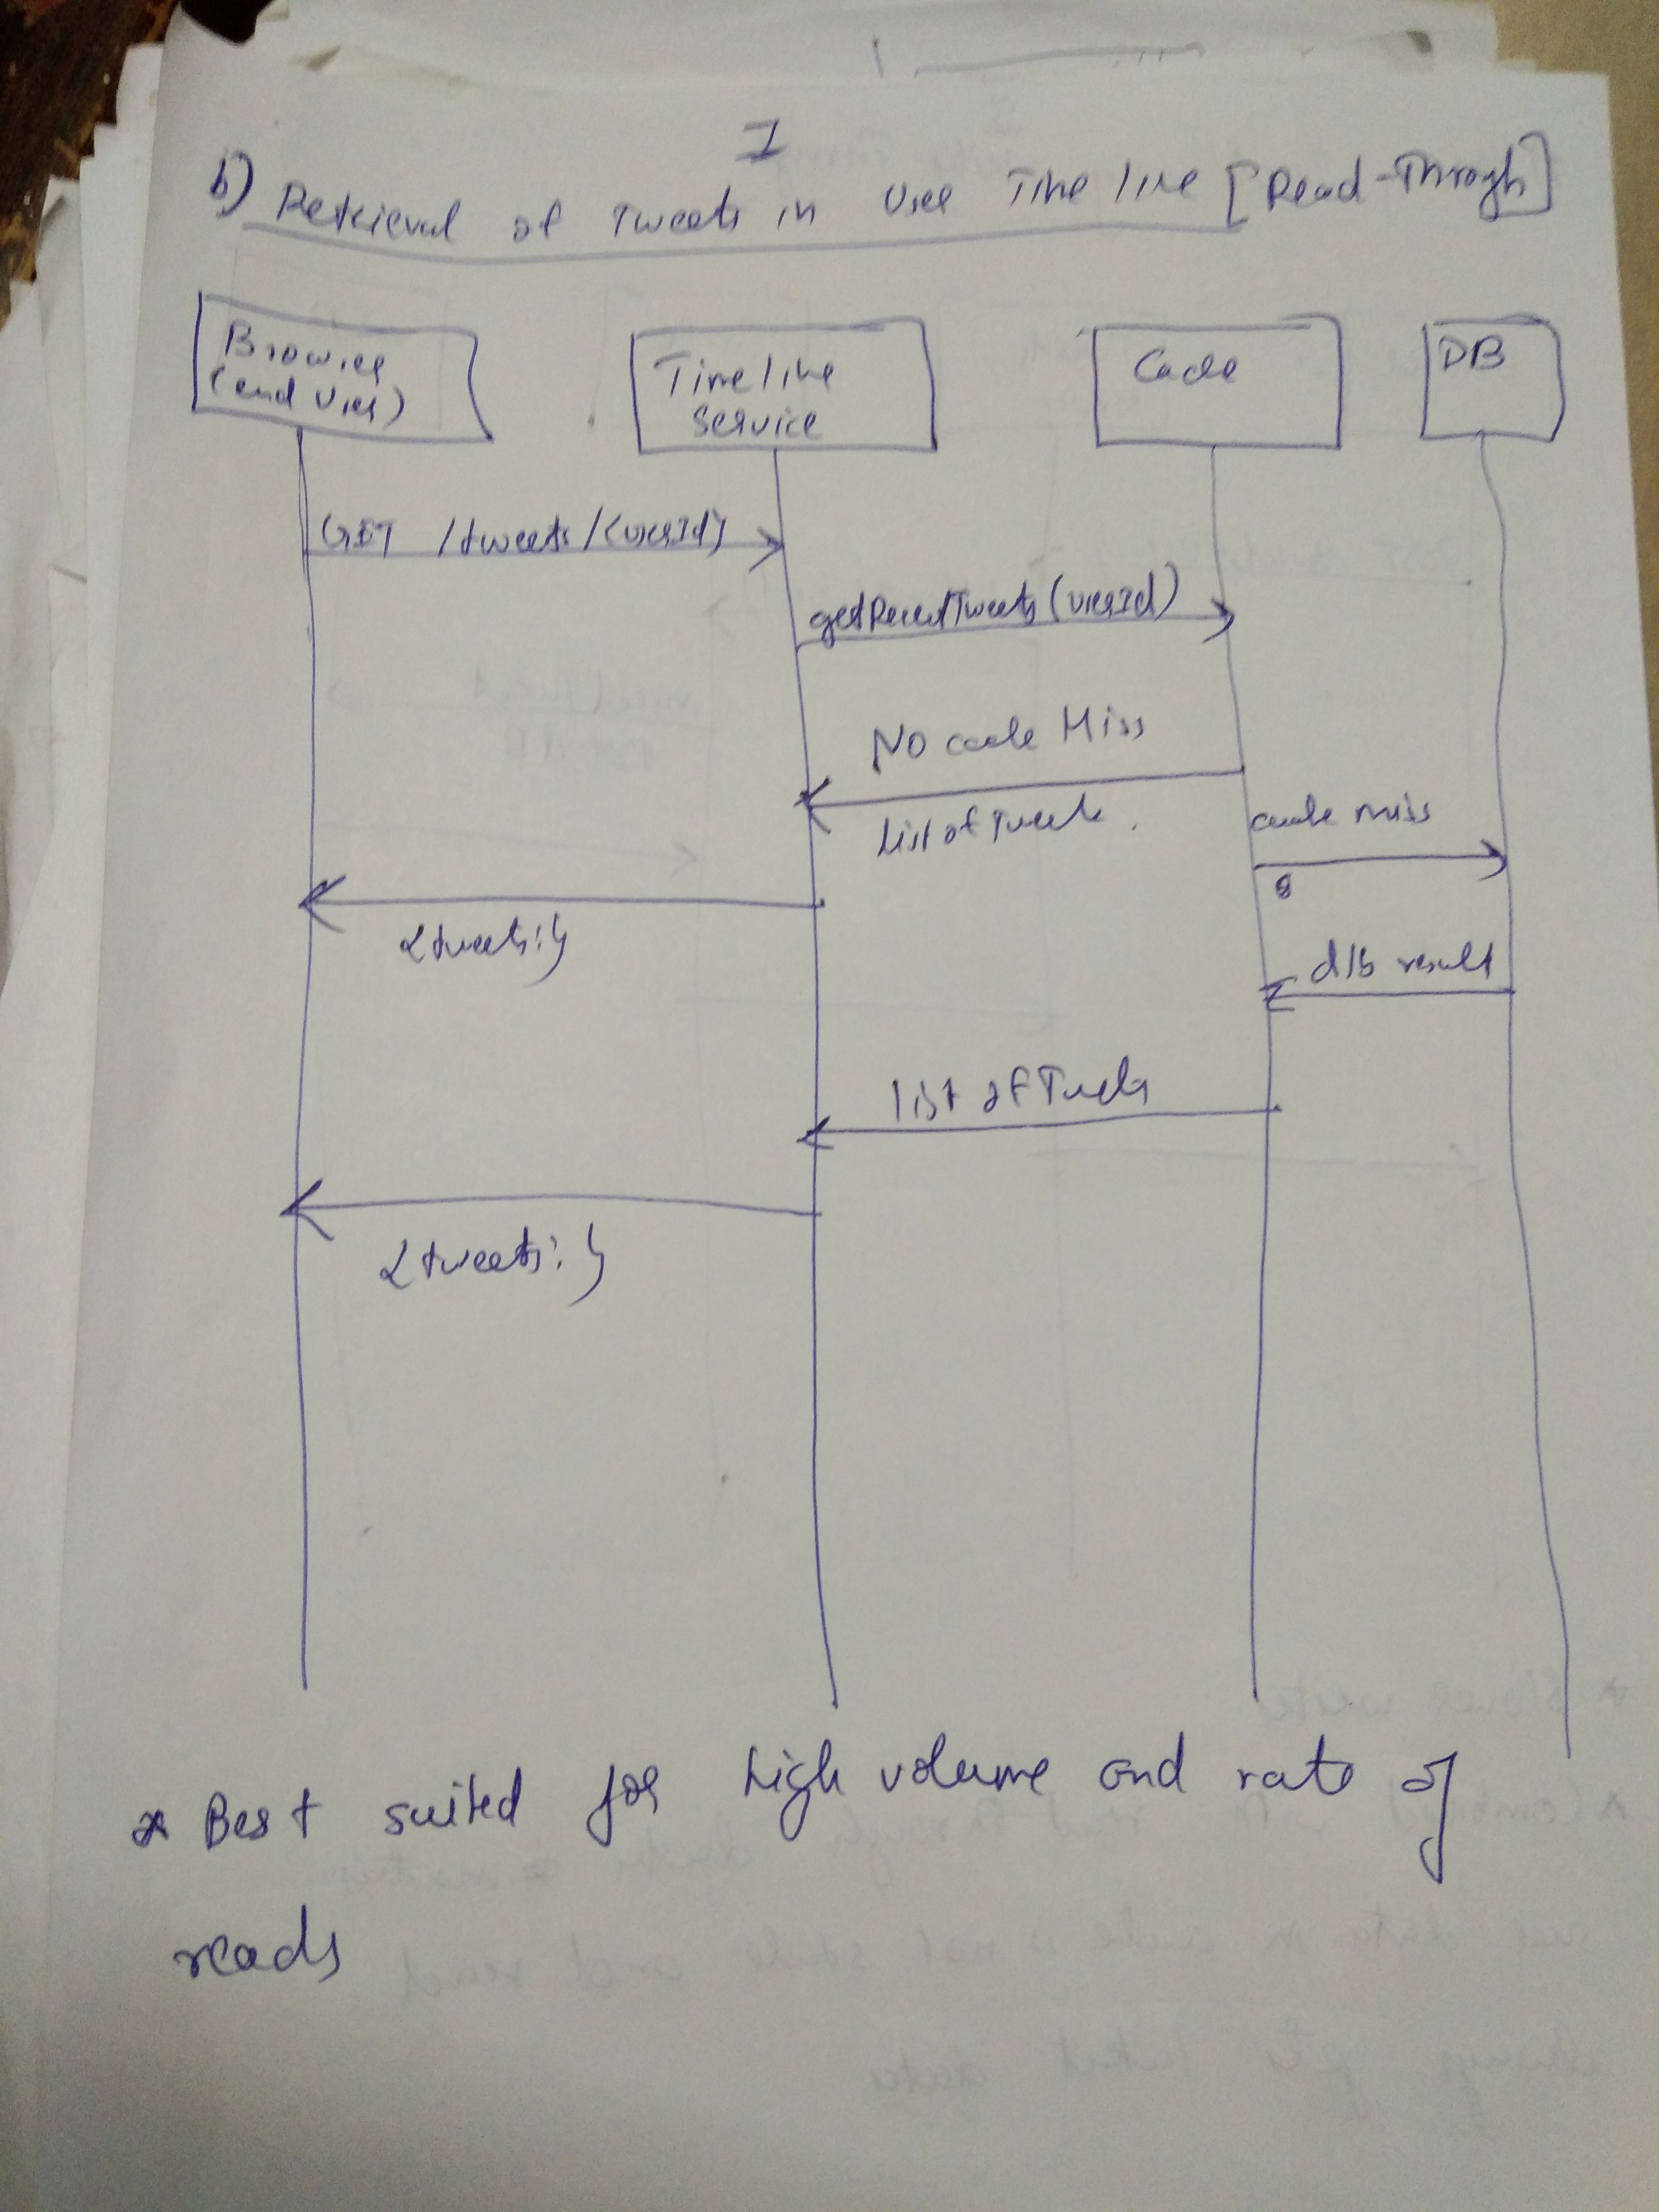 I
b) Retrieval of Tweets in User Time line [Read-Throgh]
Browser
(end User)
Timeline
Service
Cache
DB
GET /tweets/{userId}
getRecentTweets(userId)
No cache Miss
List of Tweets.
cache miss
{tweets:}
d/b result
list of Tweets
{tweets:}
* Best suited for high volume and rate of
reads